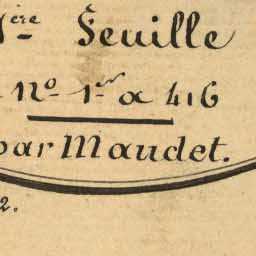 1ère Feuille
Nº 1er a 416
par Maudet.
2.